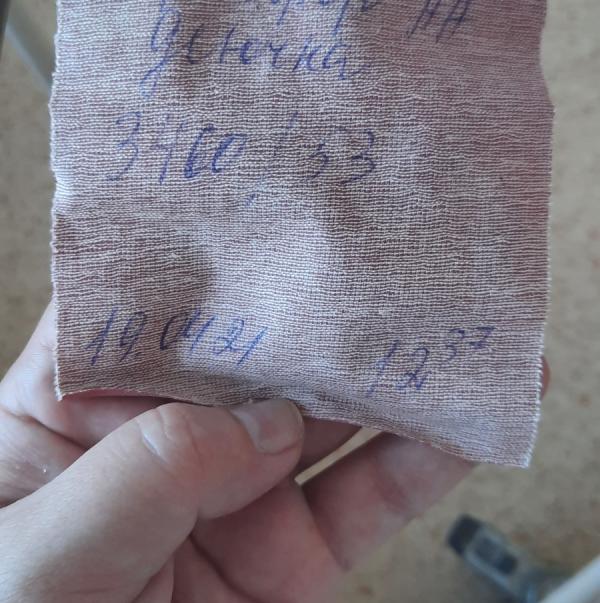 АА
девочка
3460/53
19.04.21 12³⁷